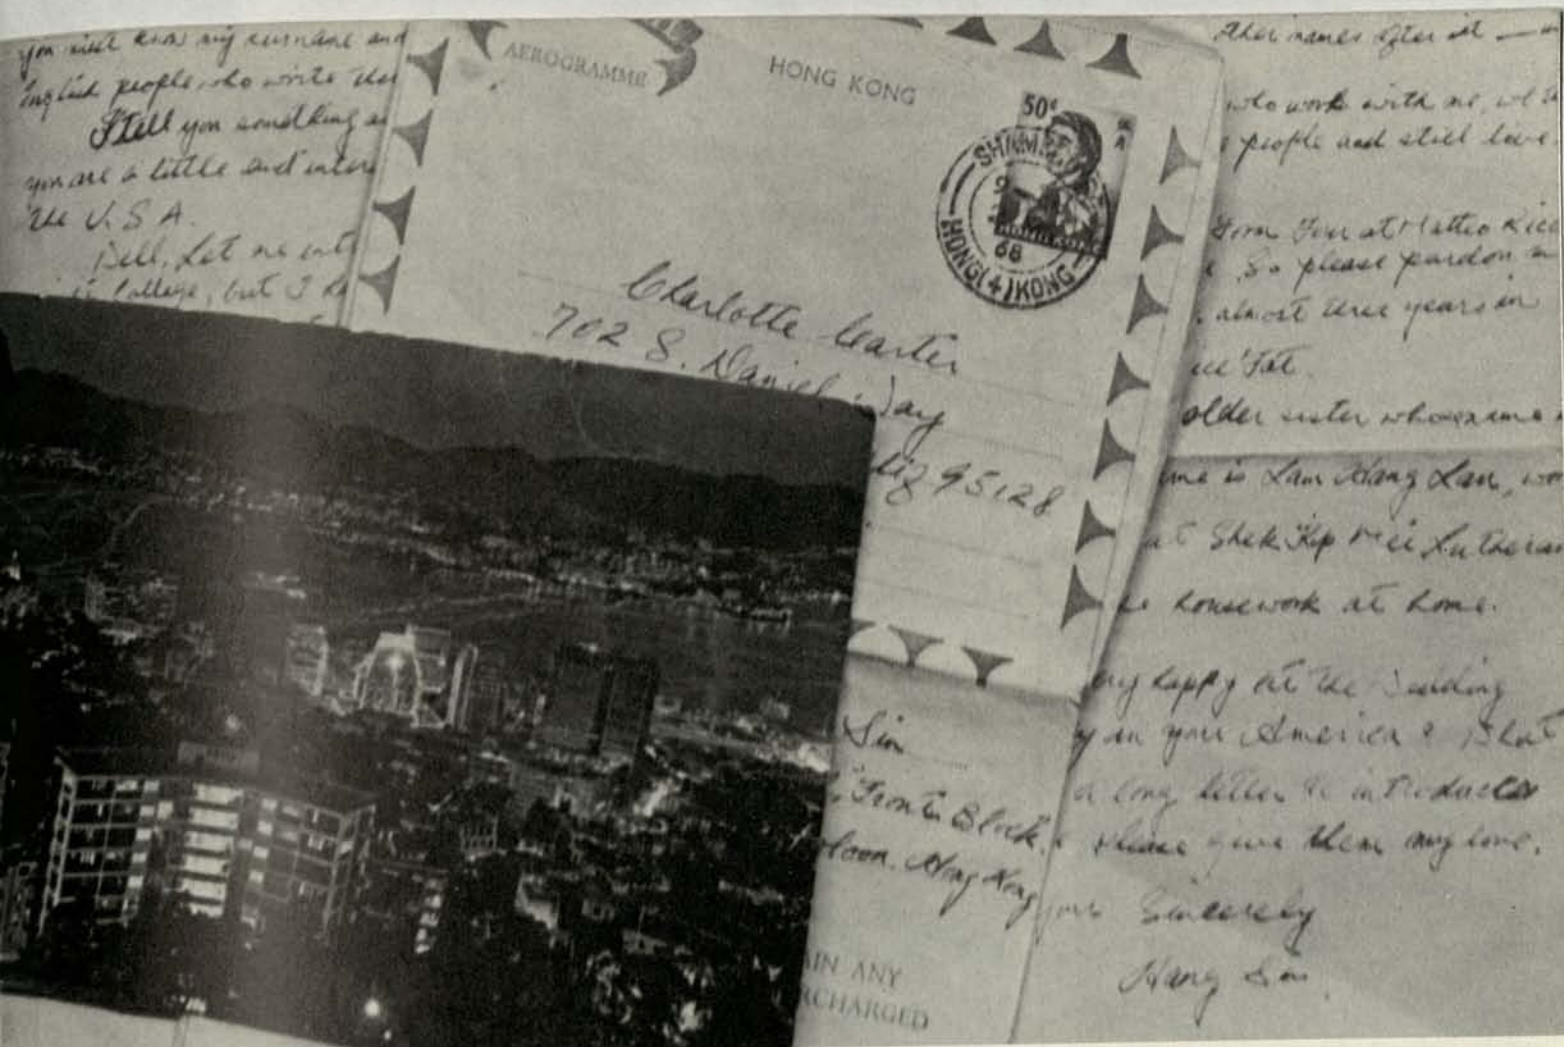 you will know my surname and
English people who write the
I tell you something
you are a little and
the U.S.A.
Well, Let me
College, but I
AEROGRAMME
HONG KONG
50¢
HONG (4) KONG
68
Charlotte Carter
702 S. Daniel Way
95128
Sin
Front Block,
loon, Hong Kong
AIN ANY
CHARGED
other names after it —
who work with me, we
people and still live
Form Four at Matteo Ricci
So please pardon
almost three years in
Fat.
older sister whose name
me is Lam Hang Lan,
at Shek Kip Mei Lutheran
housework at home.
happy at the
in your America? What
a long letter to introduce
please give them my love.
Yours Sincerely
Hang Sin